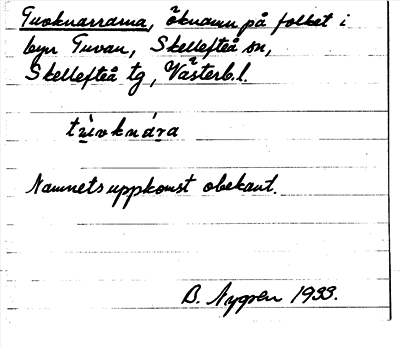 Tuvknarrarna, öknamn på folket i
byn Tuvan, Skellefteå sn,
Skellefteå tg, Västerb.l.
tu̇vknára
Namnets uppkomst obekant.
B. Nygren 1933.